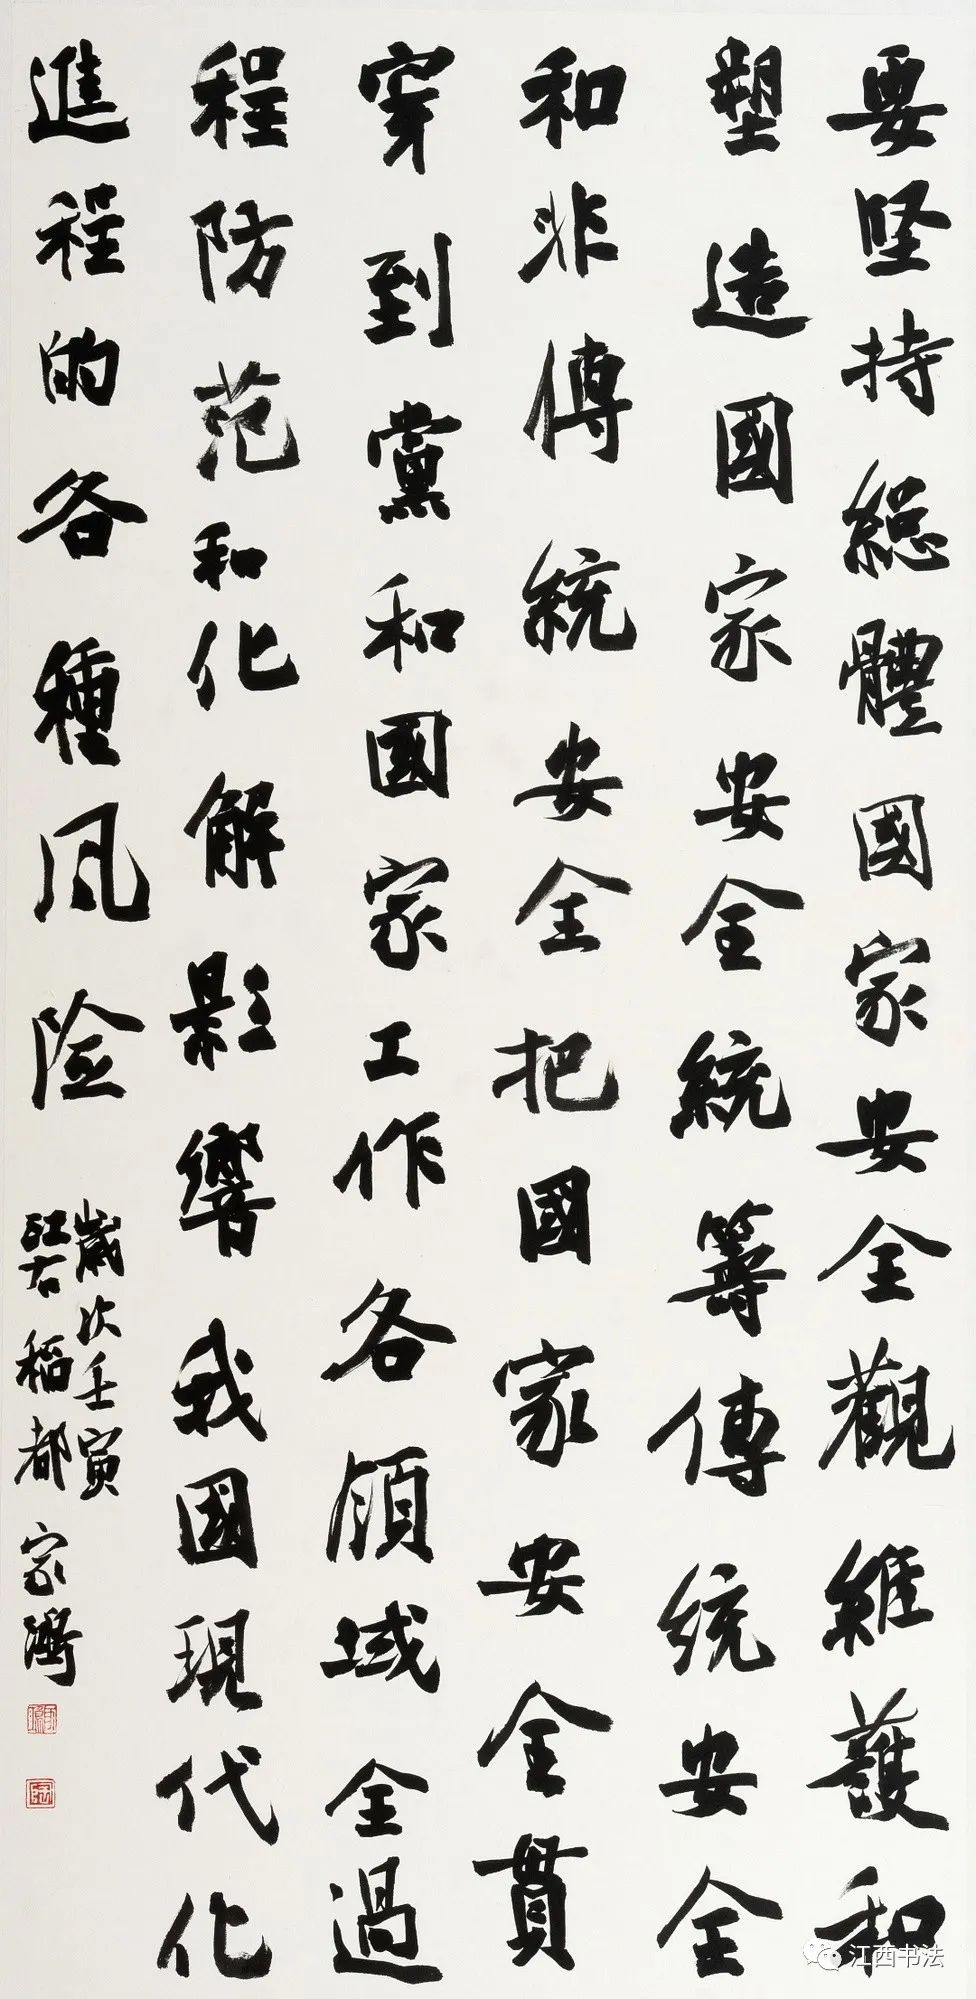 要坚持總體國家安全觀維護和
塑造國家安全統籌傳统安全
和非傳統安全把國家安全貫
穿到黨和國家工作各領域全過
程防范和化解影響我國現代化
進程的各種风险
歲次壬寅
江右稻都家濤
江西书法